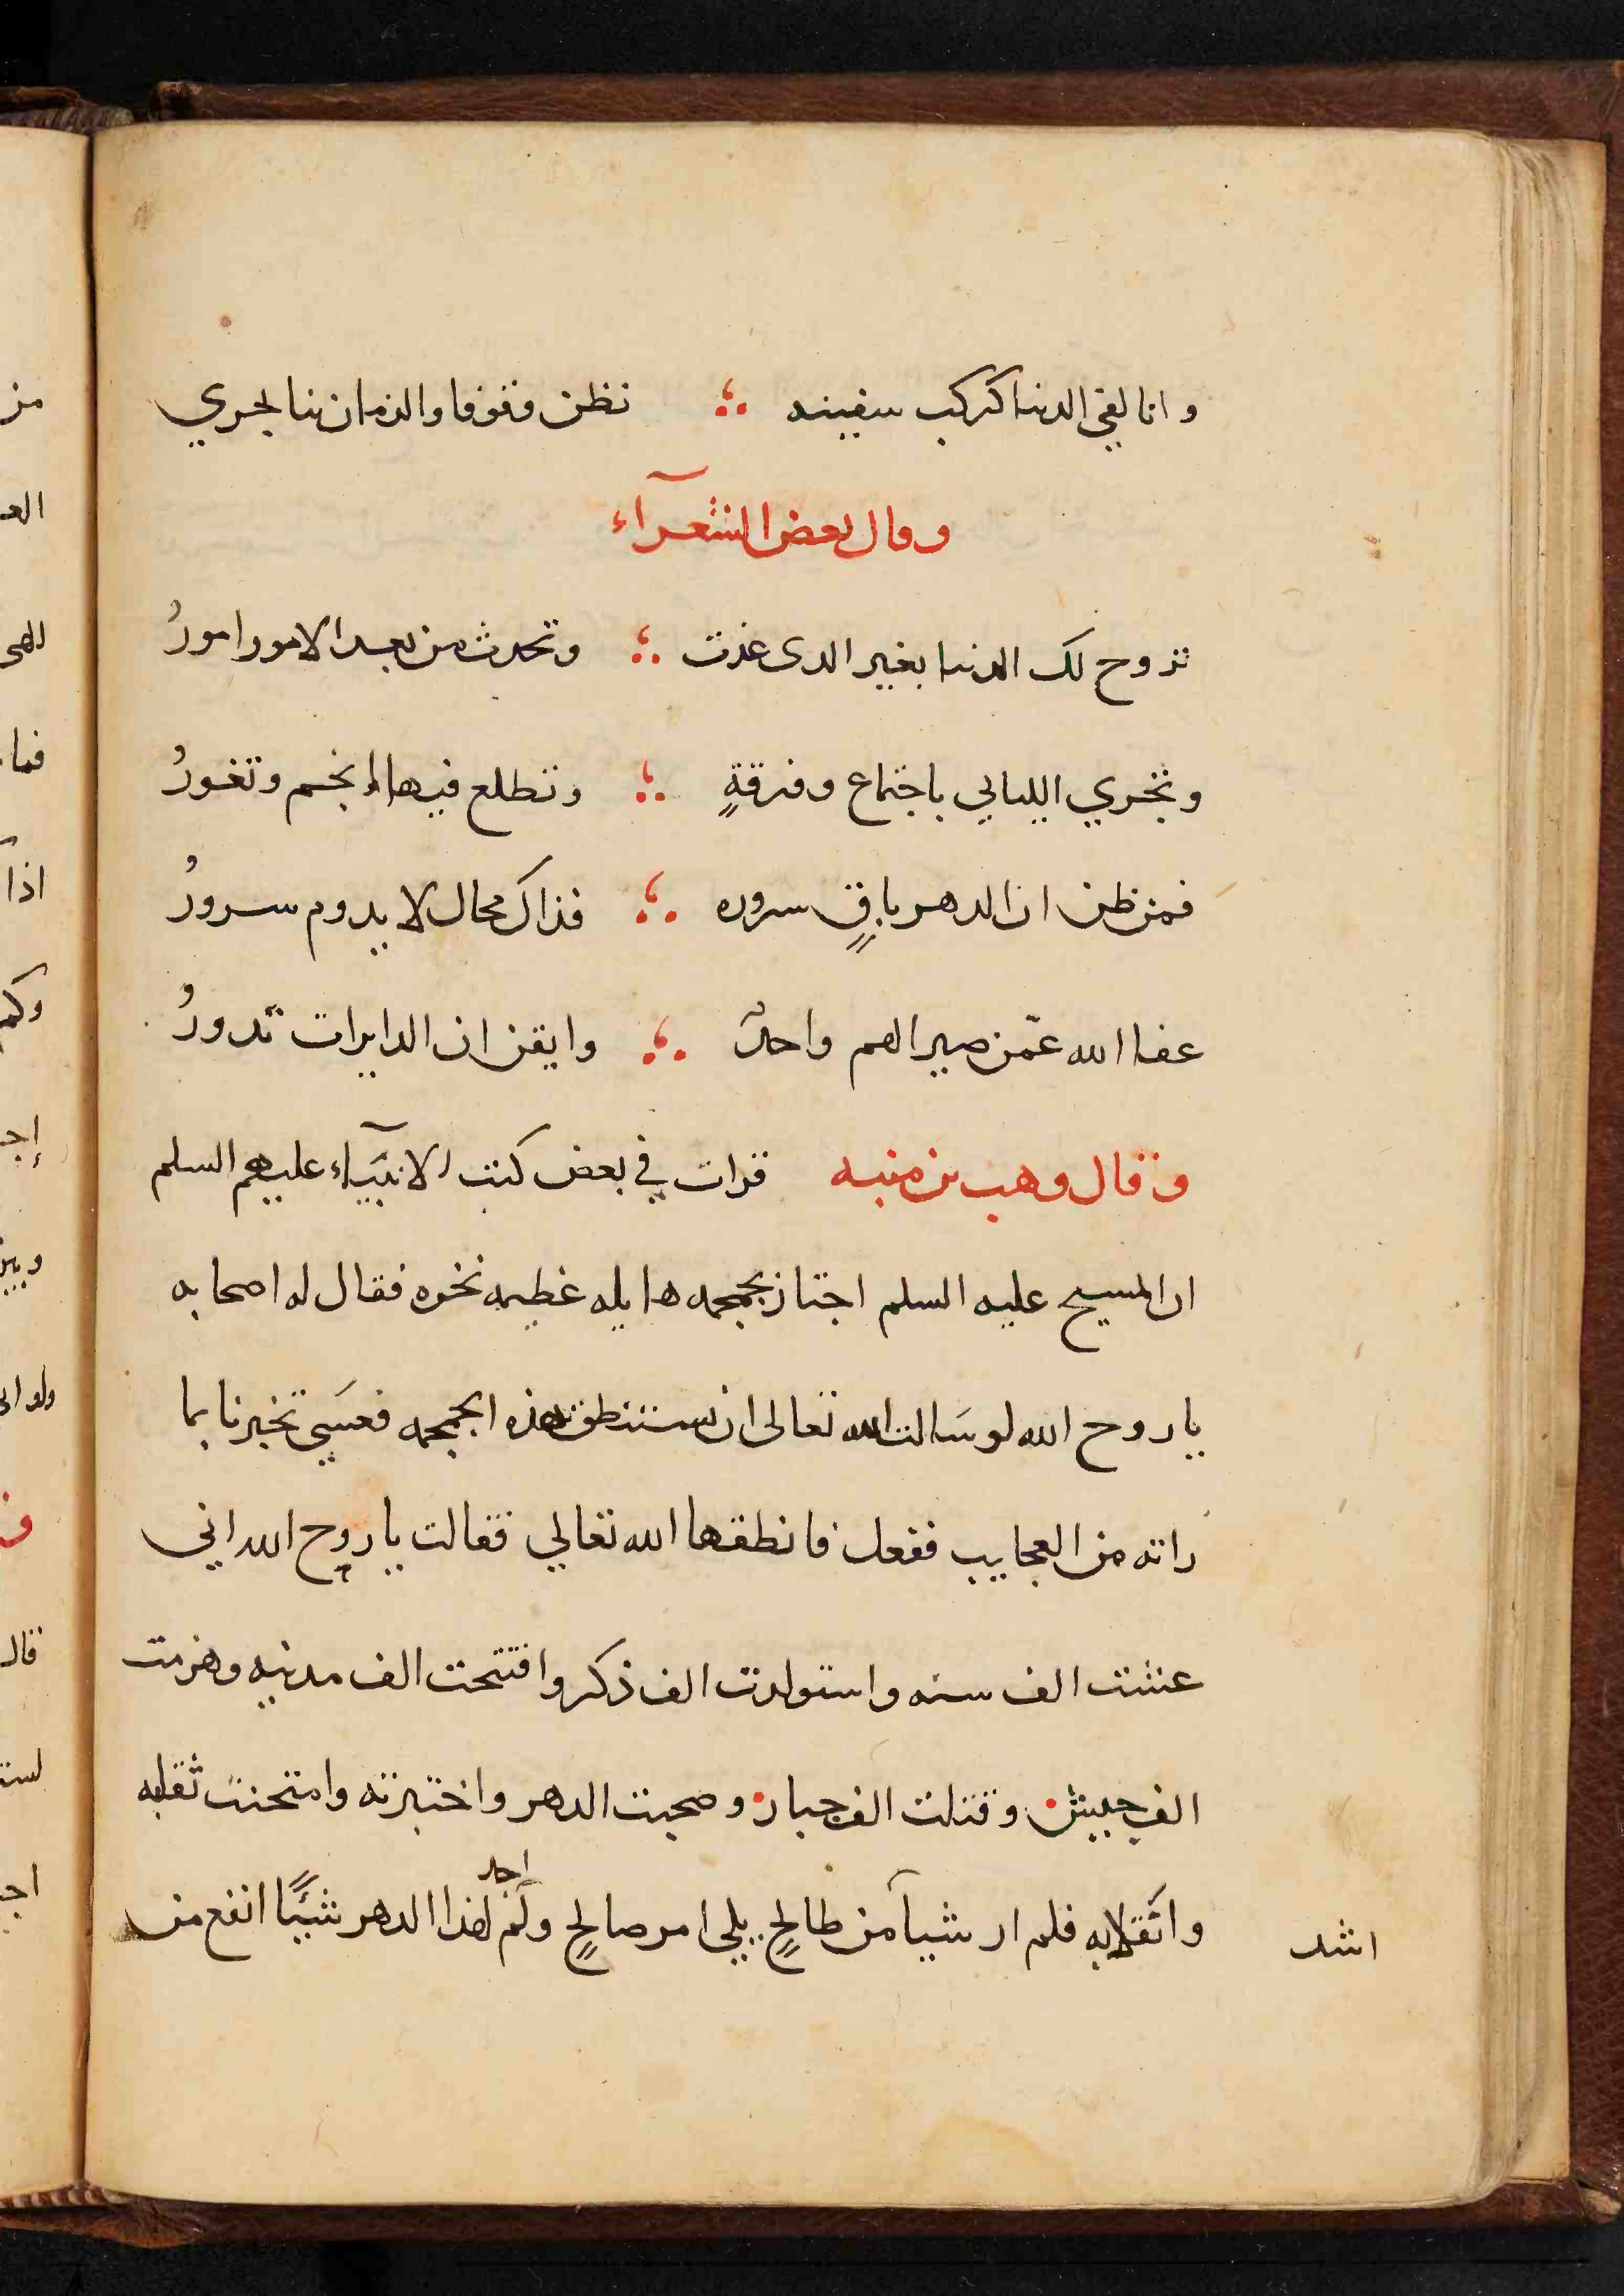 وانا لفي الدنيا كركب سفينه ؞ نظن وقوفا والزمان بنا يجري
وقال بعض الشعرآء
تروح لك الدنيا بغير الدى غدت ؞ وتحدث من بعد الامور امورُ
وتجري الليالي باجتماع وفرقةٍ ؞ وتطلع فيها انجم وتغورُ
فمن ظن ان الدهر باقٍ سروره ؞ فذاك محال لا يدوم سرورُ
عفا الله عمّن صير الهم واحدًا ؞ وايقن ان الدايرات تدورُ
وقال وهب بن منبه قرات في بعض كتب الانبيآء عليهم السلم
ان المسيح عليه السلم اجتاز بجمجمه هايله عظيمه نخره فقال له اصحابه
يا روح الله لو سَالت الله تعالى ان تستنطق هذه الجمجمه فعسَي تخبرنا بما
راته من العجايب ففعل فانطقها الله تعالي فقالت يا روح الله اني
عشت الف سنه واستولدت الف ذكر وافتتحت الف مدنيه وهزمت
الف جيش وقتلت الف جبار وصحبت الدهر واختبرته وامتحنت تقلبه
وانقلابه فلم ار شيآ من طالحٍ يلي امر صالحٍ ولم اجد لهذا الدهر شيئًا انفع من
اشد
من